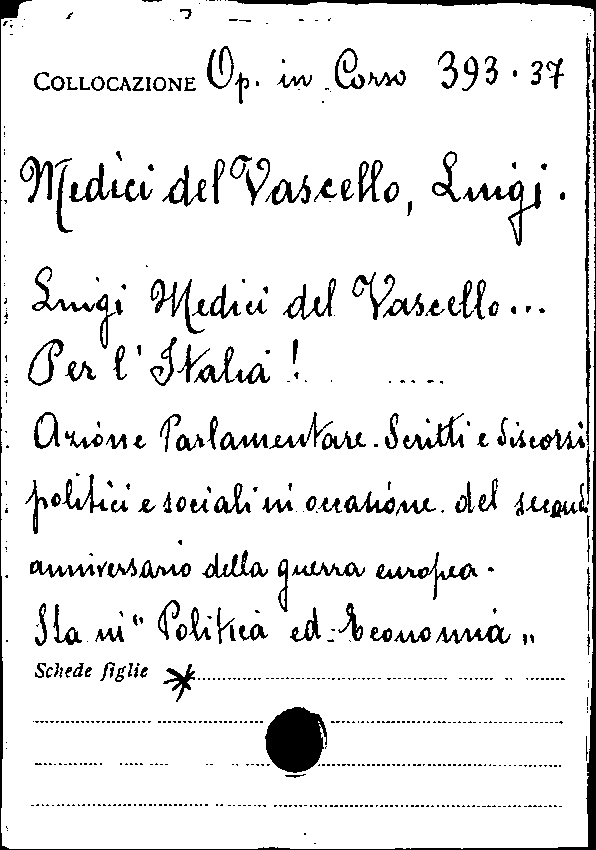 COLLOCAZIONE Op. in Corso 393.37
Medici del Vascello, Luigi.
Luigi Medici del Vascello...
Per l'Italia! .....
Azione Parlamentare. Scritti e discorsi
politici e sociali in occasione del second
anniversario della guerra europea.
Sta in "Politica ed Economia"
Schede figlie *